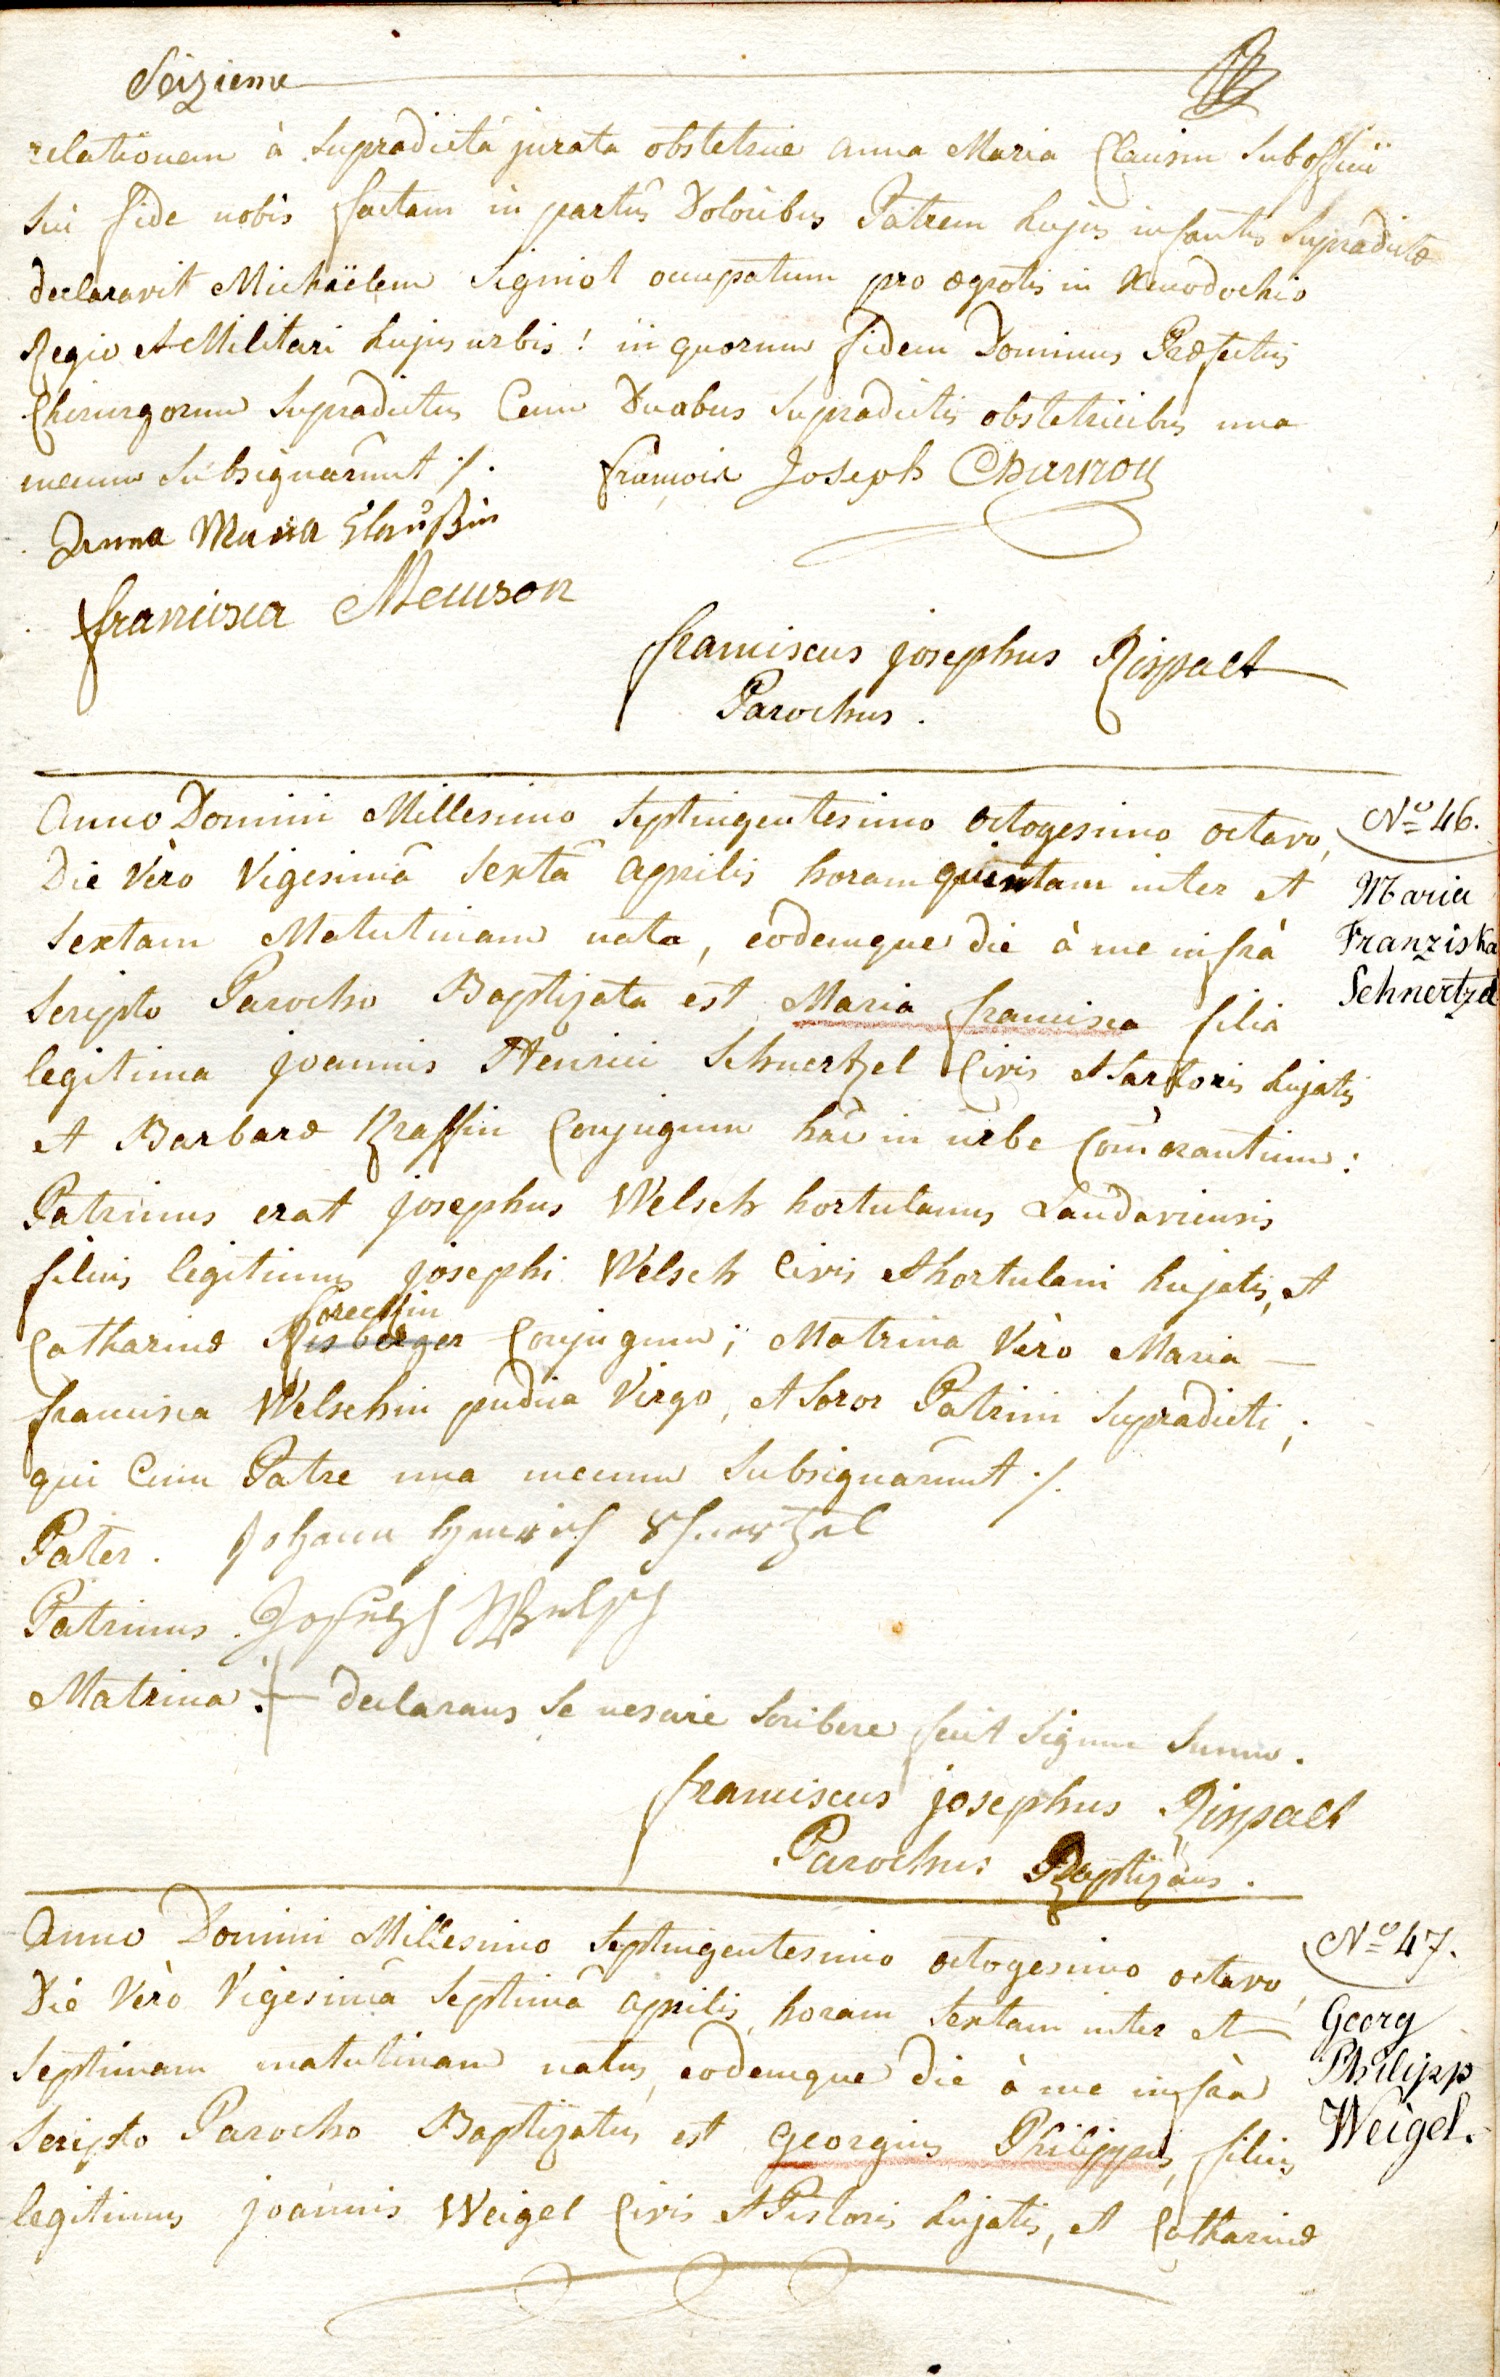 Seizieme
relationem à Supradictâ jurata obstetrice Anna Maria Clausin Sub officii
Sui fide nobis factam in partûs Doloribus Patrem hujus infantis Supradicta
declaravit Michaëlem Signiol occupatum pro ægrotis in Xenodochio
Regio et Militari hujus urbis! in quorum fidem Dominus Præfectus
Chirurgorum Supradictus Cum Duabus Supradictis obstetricibus una
mecum Subsignarunt ./.
françois Joseph
Anna Maria Claußin
francisca
franciscus josephus Rispalt
Parochus.
Anno Domini Millesimo Septingentesimo octogesimo octavo,
Die Vero Vigesimâ Sextâ Aprilis horam quintam inter et
Sextam Matutinam nata, eodemque die à me infrà
Scripto Parocho Baptizata est Maria francisca filia
legitima joannis Henrici Schnertzel Civis et Sartoris hujatis
et Barbaræ Kraffin Conjugum hâc in urbe Com̃orantium:
Patrinus erat josephus Welsch hortulanus Landaviensis
filius legitimus josephi Welsch Civis et hortulani hujatis, et
Catharinæ Conjugum; Matrina Vero Maria
francisca Welschin pudica Virgo, et Soror Patrini Supradicti;
qui Cum Patre una mecum Subsignarunt ./.
Pater. Johann Henrich Schnertzel
Patrinus. Joseph Welsch
Matrina. + declarans Se nescire Scribere fecit Signum Suum.
franciscus josephus Rispalt
Parochus Baptizans.
Anno Domini Millesimo Septingentesimo octogesimo octavo,
Die Vero Vigesimâ Septimâ Aprilis, horam Sextam inter et
Septimam matutinam natus, eodemque die à me infrà
Scripto Parocho Baptizatus est Georgius Philippus, filius
legitimus joannis Weigel Civis et Pistoris hujatis, et Catharinæ
No 46.
Maria
Franziska
Schnertzel
No 47.
Georg
Philipp
Weigel.